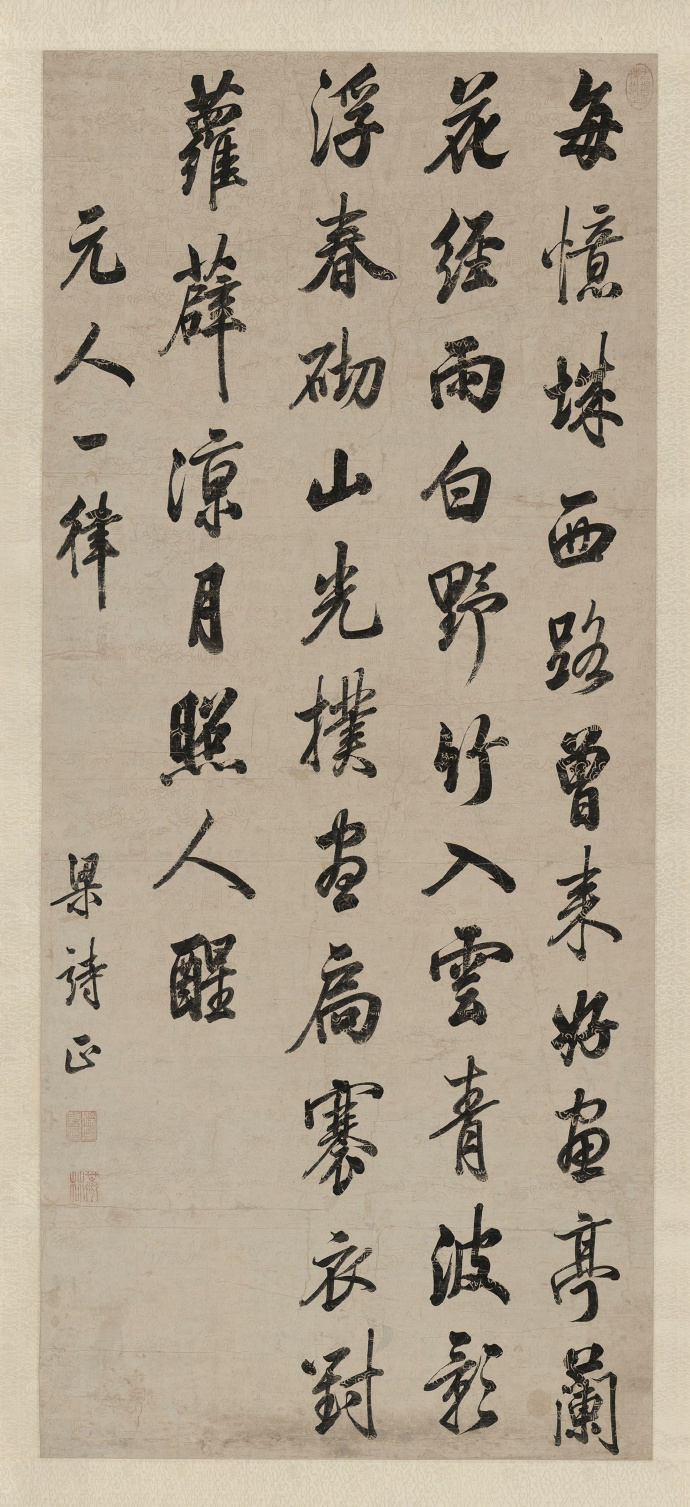 每憶城西路曾来好畫亭蘭
花經雨白野竹入雲青波影
浮春砌山光撲畫扃褰衣對
蘿薜凉月照人醒
元人一律
梁詩正